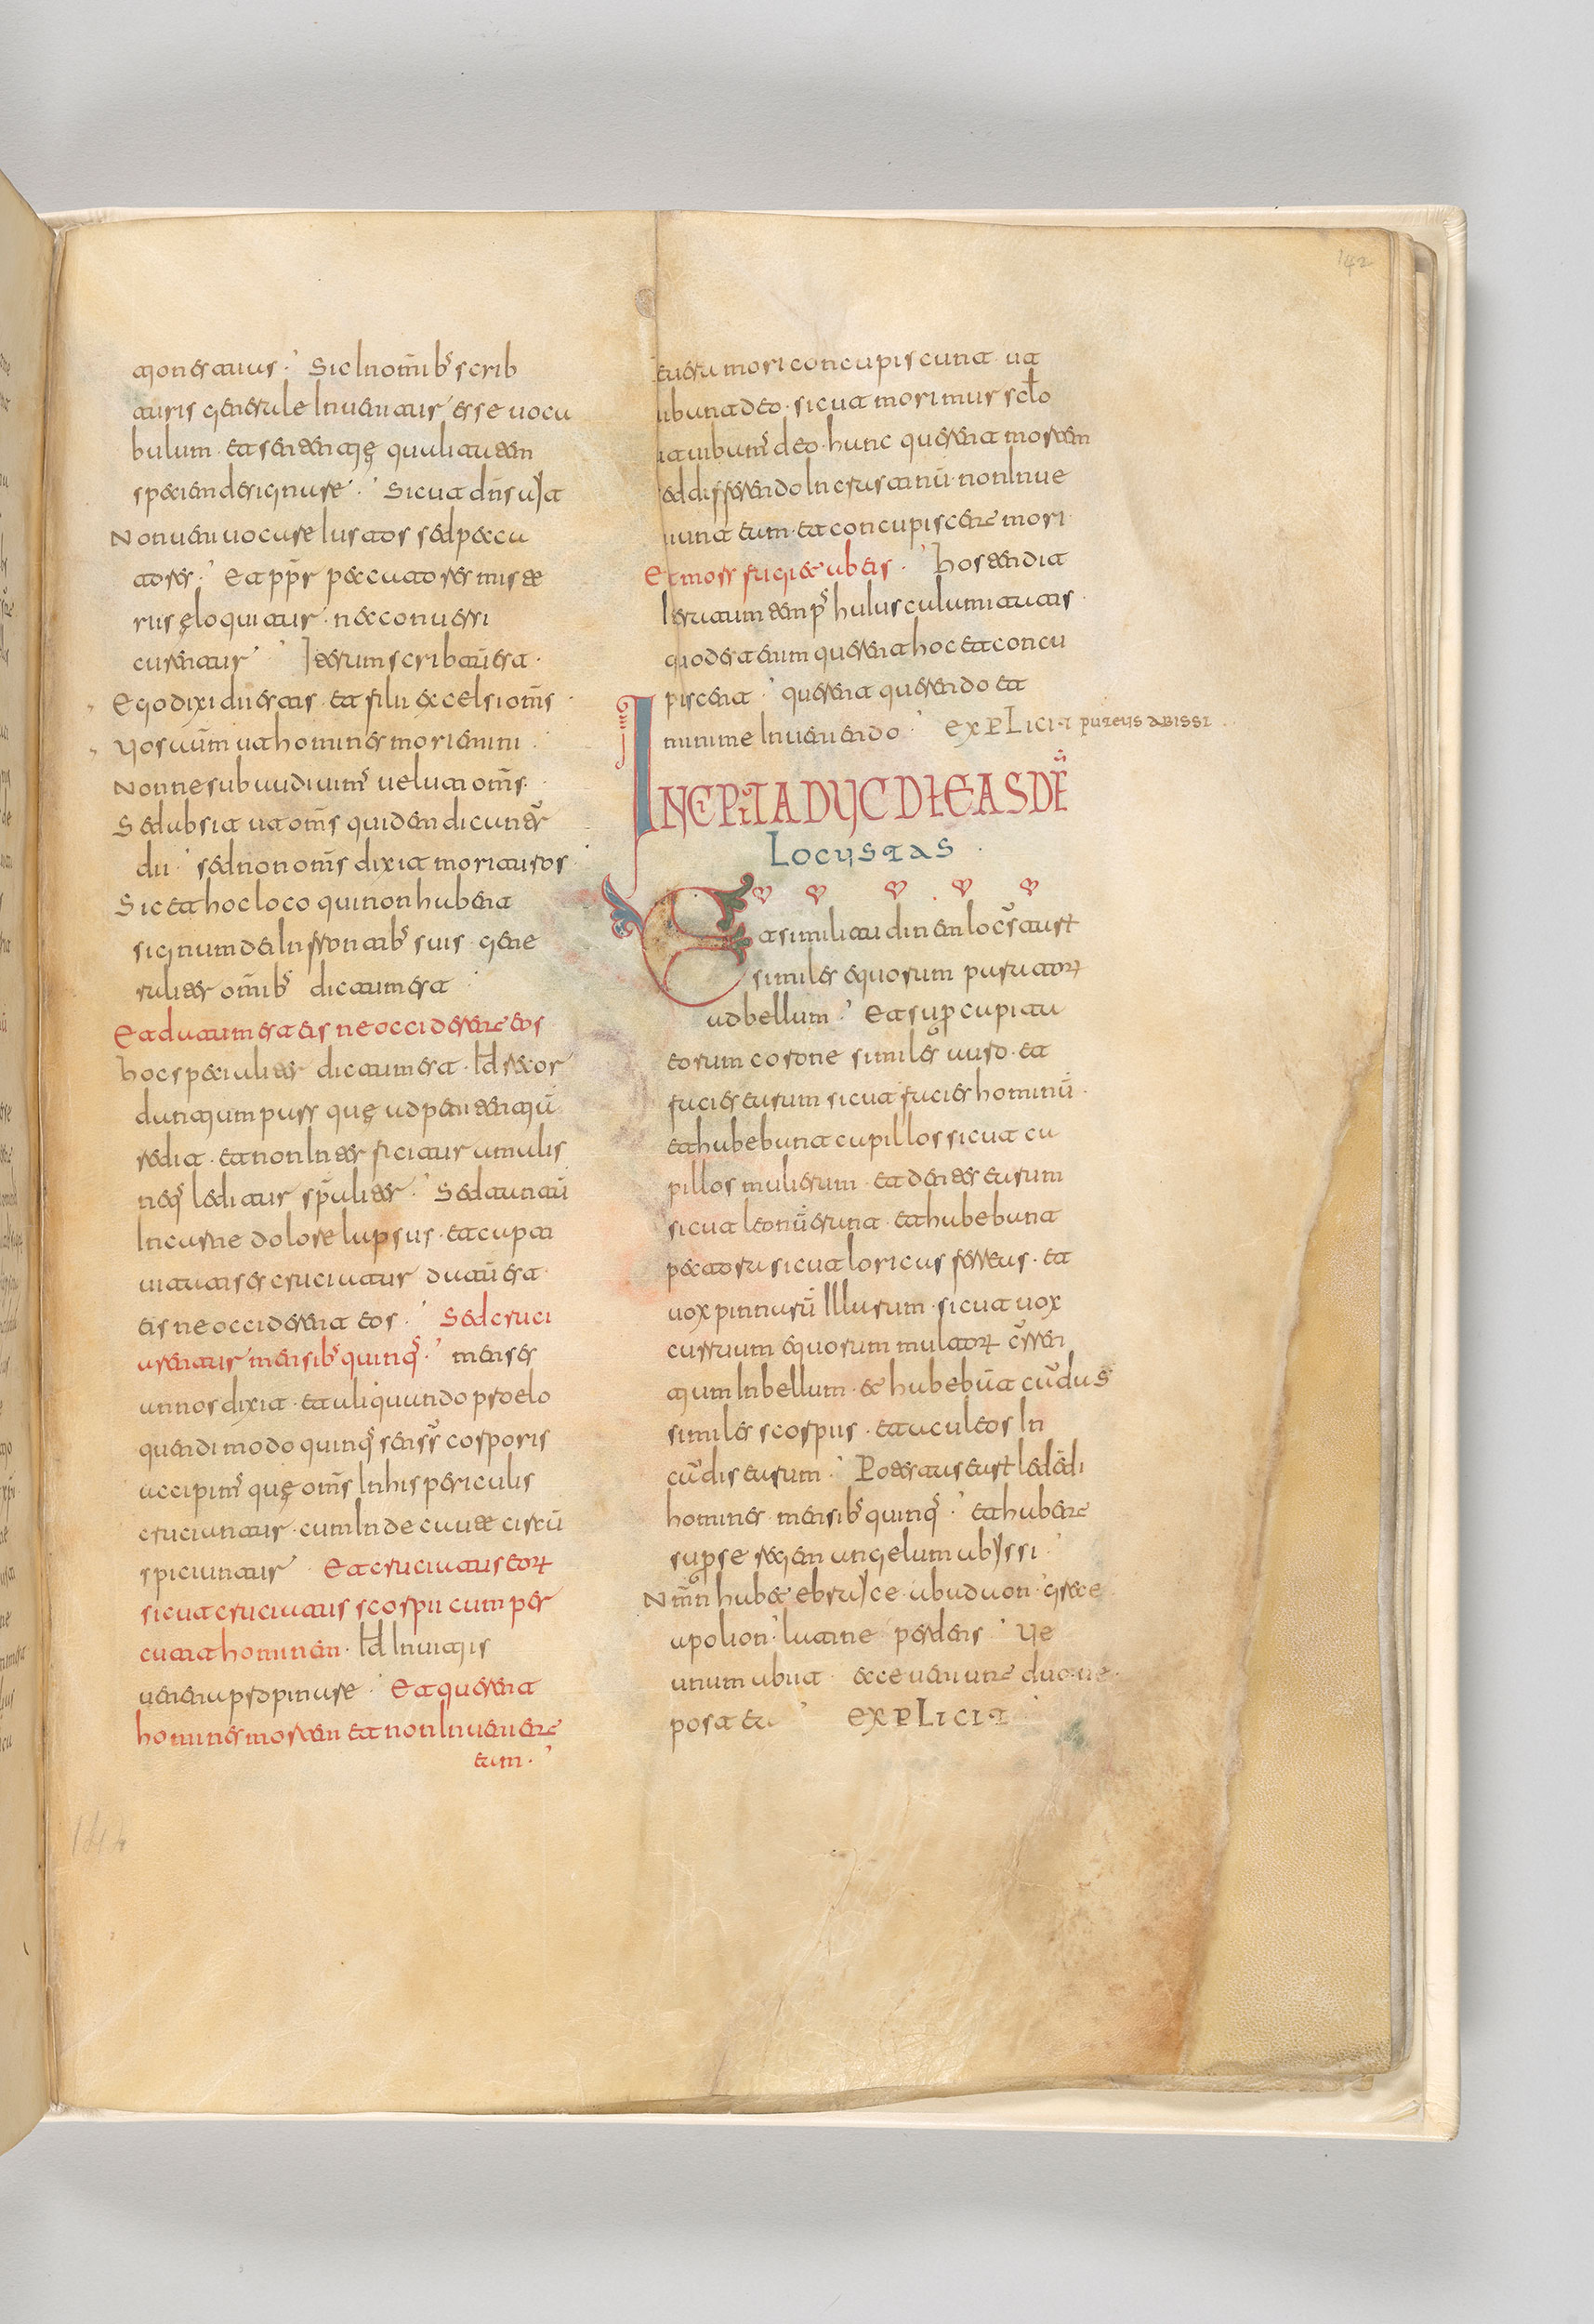 Sic In omīb; scrib
turis generale Inuenitur esse uoca
bulum · et sententię qualitatem
speciem designare · Sicut dn̄s ayt
Non ueni uocare Iustos sed pecca
tores · Et pp̄r peccatores misete
ris eloquitur · nec conuersi
curentur · Iterum scribtū est ·
Ego dixi dii estis · et filii excelsi om̄s ·
Uos aūm ut homines moriemini ·
Nonne subaudiuim; uelut om̄s ·
Sed absit ut om̄s quidem dicuntr̄
dii · sed non om̄s dixit morituros ·
Sic et hoc loco qui non habent
signum dei In frontib; suis · gene
raliter om̄ib; dictum est ·
Et datum est eis ne occiderent eos
hoc specialiter dictum est · Id recor
dantium pars quę ad penitentiū
redit · et non Inter ficitur a malis
neq; leditur sp̄aliter · Sed tantū
In carne dolore lapsus · et capti
uitatis et cruciatur datū est
eis ne occiderent eos · Sed cruci
arentur mensib; quinq; · menses
annos dixit · et aliquando pro elo
quendi modo quinq; senss̄ corporis
accipim; quę om̄s In his periculis
cruciantur · cum Inde
spiciuntur · Et cruciatus eorum
sicut cruciatus scorpii cum per
cutit hominem · Id In uitiis
uenena propinare · Et querent
homines mortem et non Inuenient
eum ·
mori concupiscunt ut
uibunt deo · sicut morimur sclo
ut uibum; deo · hunc querent mortem
sed differendo In crastinū · non Inue
niunt eum · et concupiscent mori ·
Et mors fugiet ab eis · hos tendit
quod etenim querent hoc et concu
piscent · querent querendo et
minime Inueniendo · explicit puteus abissi
INCPIT AD UC DE EASDĒ
Locustas ·
Et similitudinem locs̄taru
similes equorum paratoru
ad bellum · Et sup capita
eorum corone similes auro · et
facies earum sicut facies hominū ·
et habebant capillos sicut ca
pillos mulierum · et dentes earum
sicut leonū erunt · et habebant
pectora sicut loricas ferreas · et
uox pinnarū Illarum · sicut uox
curruum equorum multoru cr̄ren
tium In bellum · et habebūt cau̅das
similes scorpiis · et aculeos In
cau̅dis earum · Potestas earu ledēdi
homines mensib; quinq; · et habent
supse regem angelum abyssi ·
Nmn habet ebrayce abaduon · grece
apolion · latine perdens · Ue
unum abiit · ecce ueniunt duo ue
post ·· explicit
142